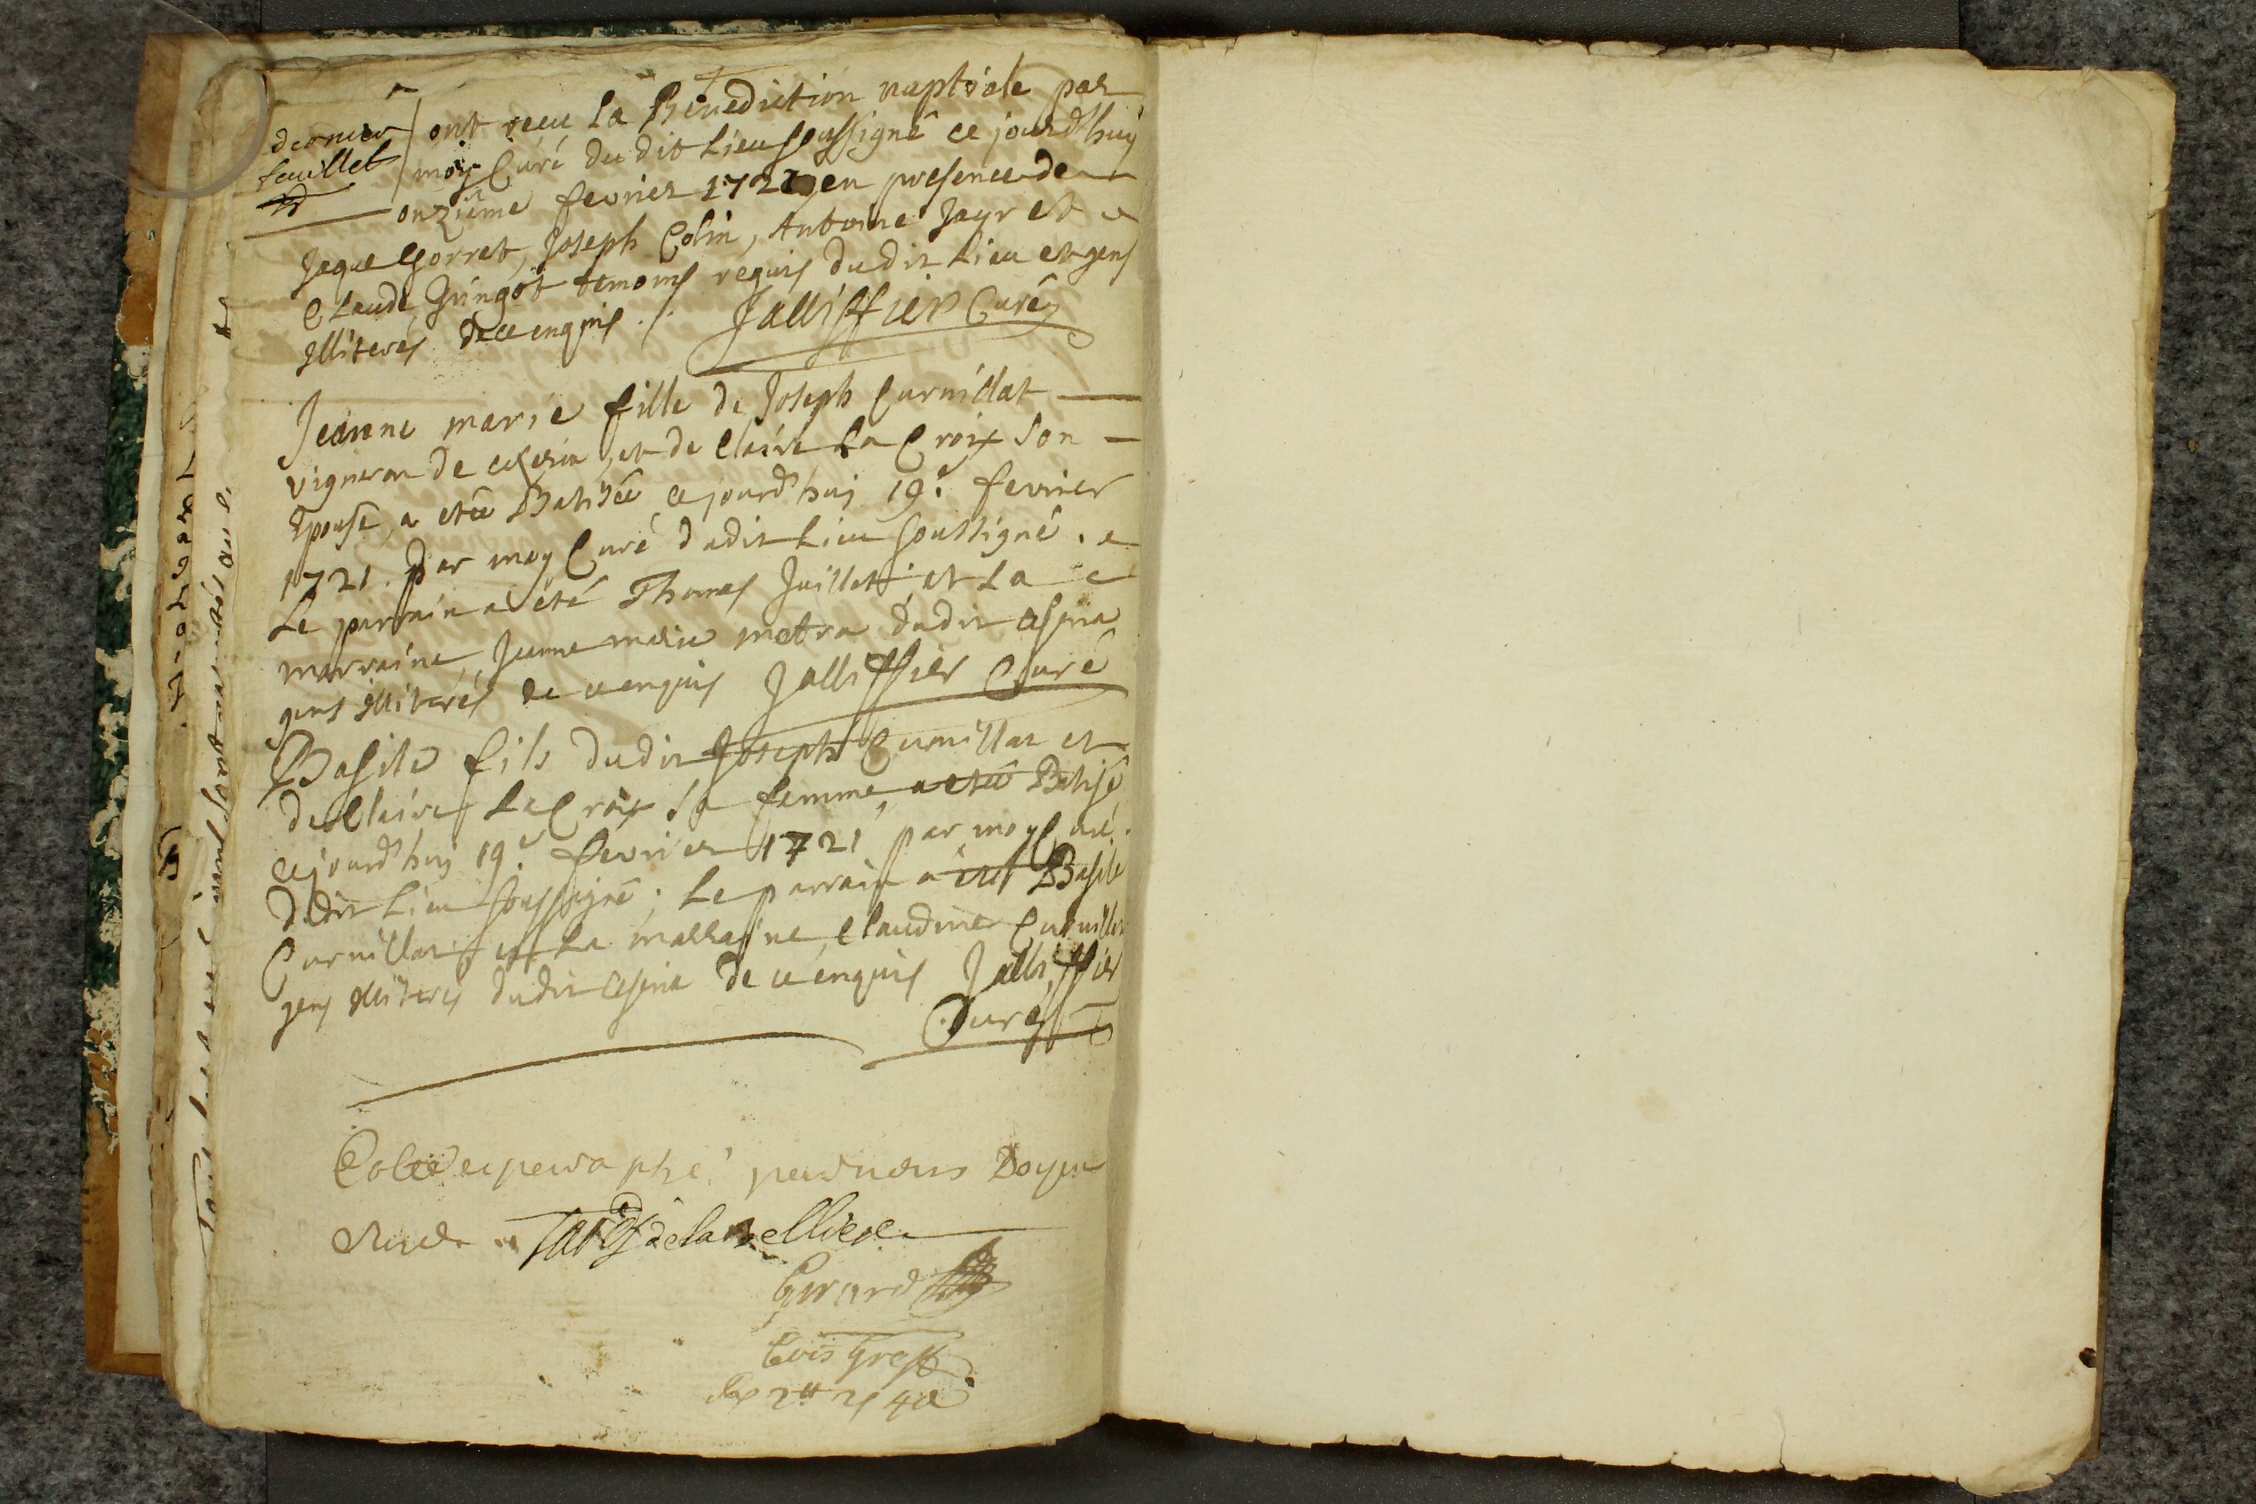 dernier
feuillet
ont receu La Benediction nuptiale par
moy Curé du dit Lieu soussigné ce jourd'huy
onzième fevrier 1721 en presence de
Jaque Gorret, Joseph Colin, Antoine Jayr et
Claude Guingot temoins requis dudit Lieu et gens
Illiterés de ce enquis ./. Jalliffier Curé
Jeanne marie fille de Joseph Curnillat
vigneron de et de Claire La Croix son
Epouse, a etée Batisée ce jourd'huy 19e fevrier
1721. par moy Curé dudit Lieu soussigné.
Le parrain a été Thomas Juillet, et La
marraine, Jeanne marie metra dudit
gens Illiterés de ce enquis Jalliffier Curé
Basile fils dudit Joseph Curnillat et
de Claire La Croix sa femme, a eté Batisé
ce jourd'huy 19e fevrier 1721 par moy Curé
dudit Lieu soussigné. Le parrain a été Basile
Curnillat et La marraine, Claudine Curnillat
gens Illiterés dudit de ce enquis Jalliffier
Curé
Cotté et peraphé par nous Doyen
de la
Girard